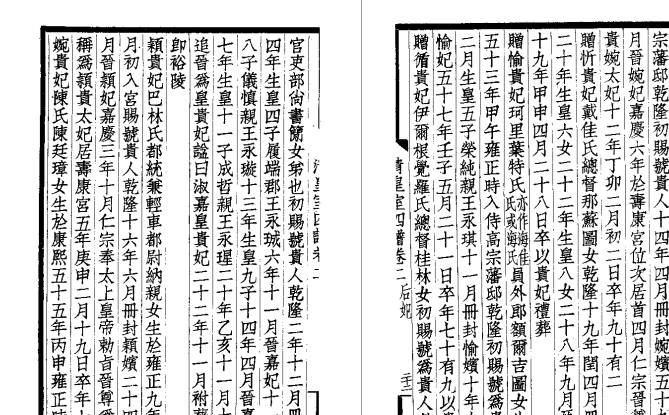 宗藩邸乾隆初賜號貴人十四年四月冊封婉嬪五十
月晉婉妃嘉慶六年於壽康宮位次居首四月仁宗晉
貴婉太妃十二年丁卯二月初二日卒年九十有二
贈忻貴妃戴佳氏總督那蘇圖女乾隆十九年閏四月
二十年生皇六女二十二年生皇八女二十八年九月
十九年甲申四月二十八日卒以貴妃禮葬
贈愉貴妃珂里葉特氏亦作海佳氏或海氏員外郎額爾吉圖女生
五十三年甲午雍正時入侍高宗藩邸乾隆初賜號爲
二月生皇五子榮純親王永琪十一月冊封愉嬪十年
愉妃五十七年壬子五月二十一日卒年七十有九以
贈循貴妃伊爾根覺羅氏總督桂林女初賜號爲貴人
清皇室四譜卷二 后妃
清皇室四譜卷二
宮吏部尚書簡女弟也初賜號貴人乾隆二年十二月冊
四年生皇四子履端郡王永珹六年十一月晉嘉妃十一
八子儀慎親王永璇十三年生皇九子十四年四月晉嘉
七年生皇十一子成哲親王永瑆二十年乙亥十一月
追晉爲皇貴妃諡曰淑嘉皇貴妃二十二年十一月祔葬
卽裕陵
穎貴妃巴林氏都統兼輕車都尉納親女生於雍正九年
月初入宮賜號貴人乾隆十六年六月冊封穎嬪二十四
月晉穎妃嘉慶三年十月仁宗奉太上皇帝勅旨晉尊爲
稱爲穎貴太妃居壽康宮五年庚申二月十九日卒年七
婉貴妃陳氏陳廷璋女生於康熙五十五年丙申雍正時